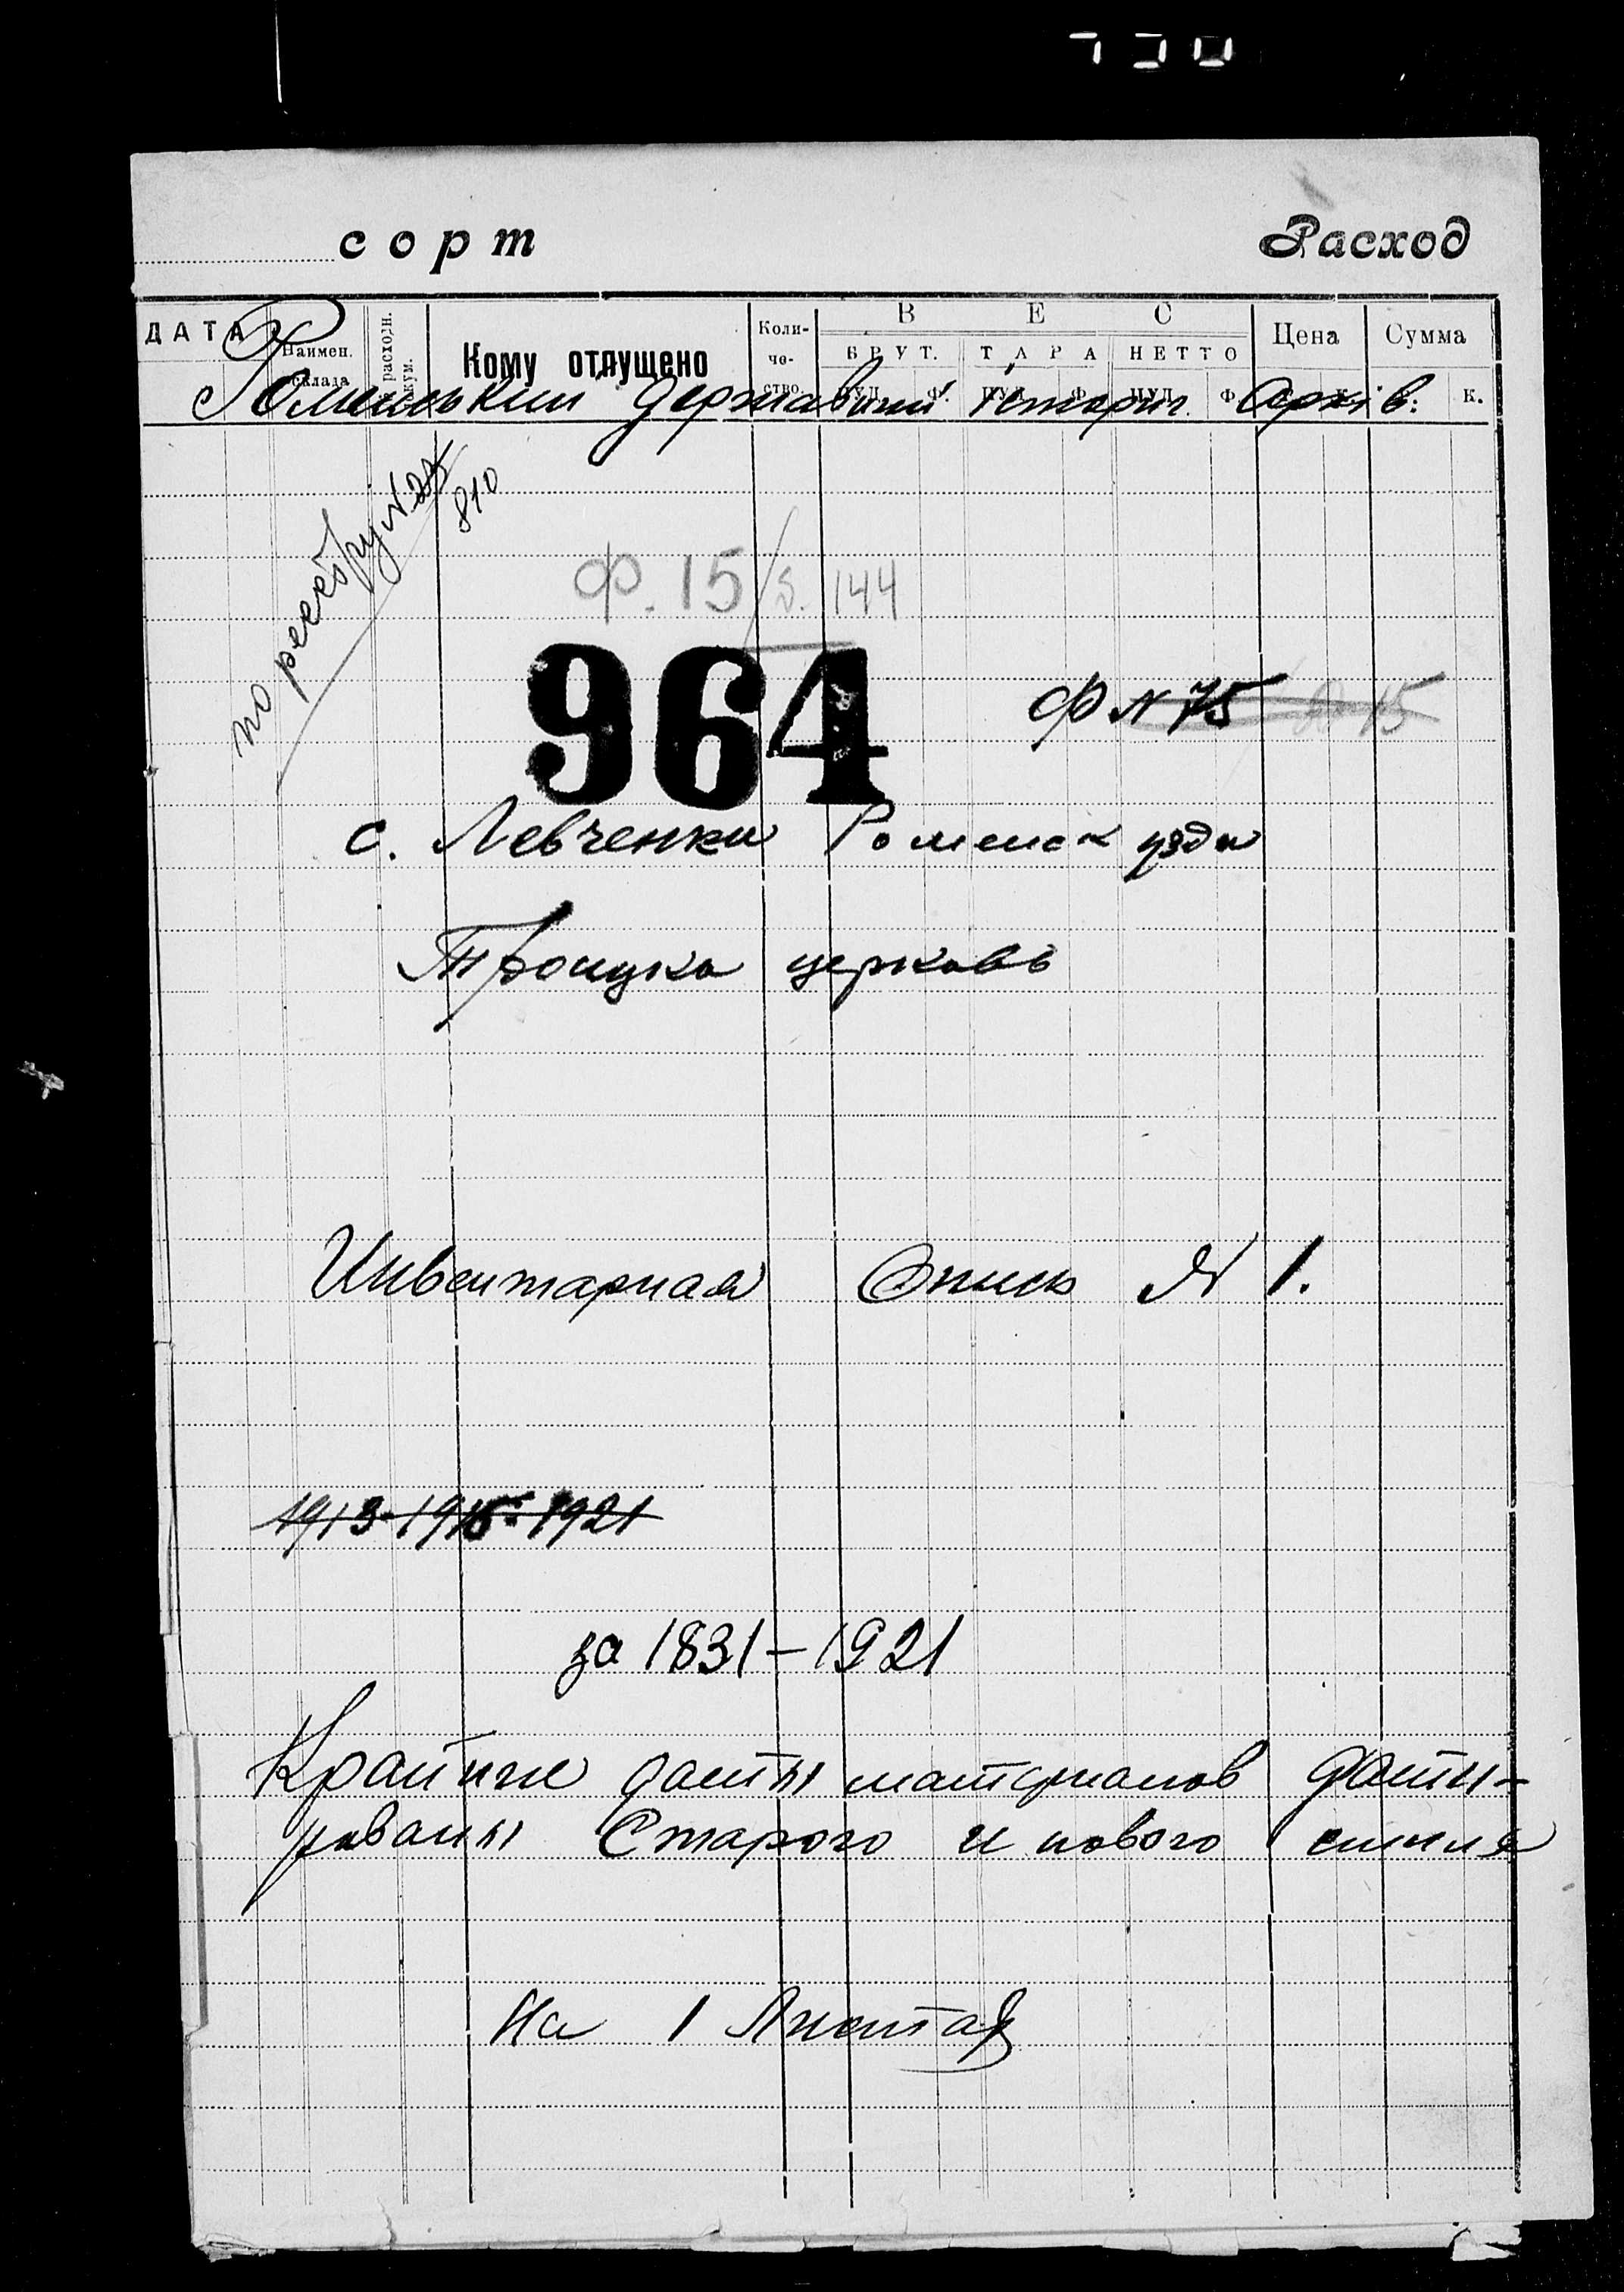 сорт Расход
ДАТА Наимен. склада расходн. Кому отпущено Коли-че-ство ВЕС Цена Сумма
БРУТ. ТАРА НЕТТО
ПУД. Ф. ПУД. Ф. ПУД. Ф. К. К.
Роменський Державний історич. Архів.
по реестру N 23
810
Ф. 15 144
964
Ф N 75
с. Левченки Роменск уэзда
Троицка церковь
Инвентарная Опись № 1.
1913-1915-1921
за 1831-1921
Крайние даты материалов дати-
рованы Старого и нового стиля
На 1 Листах